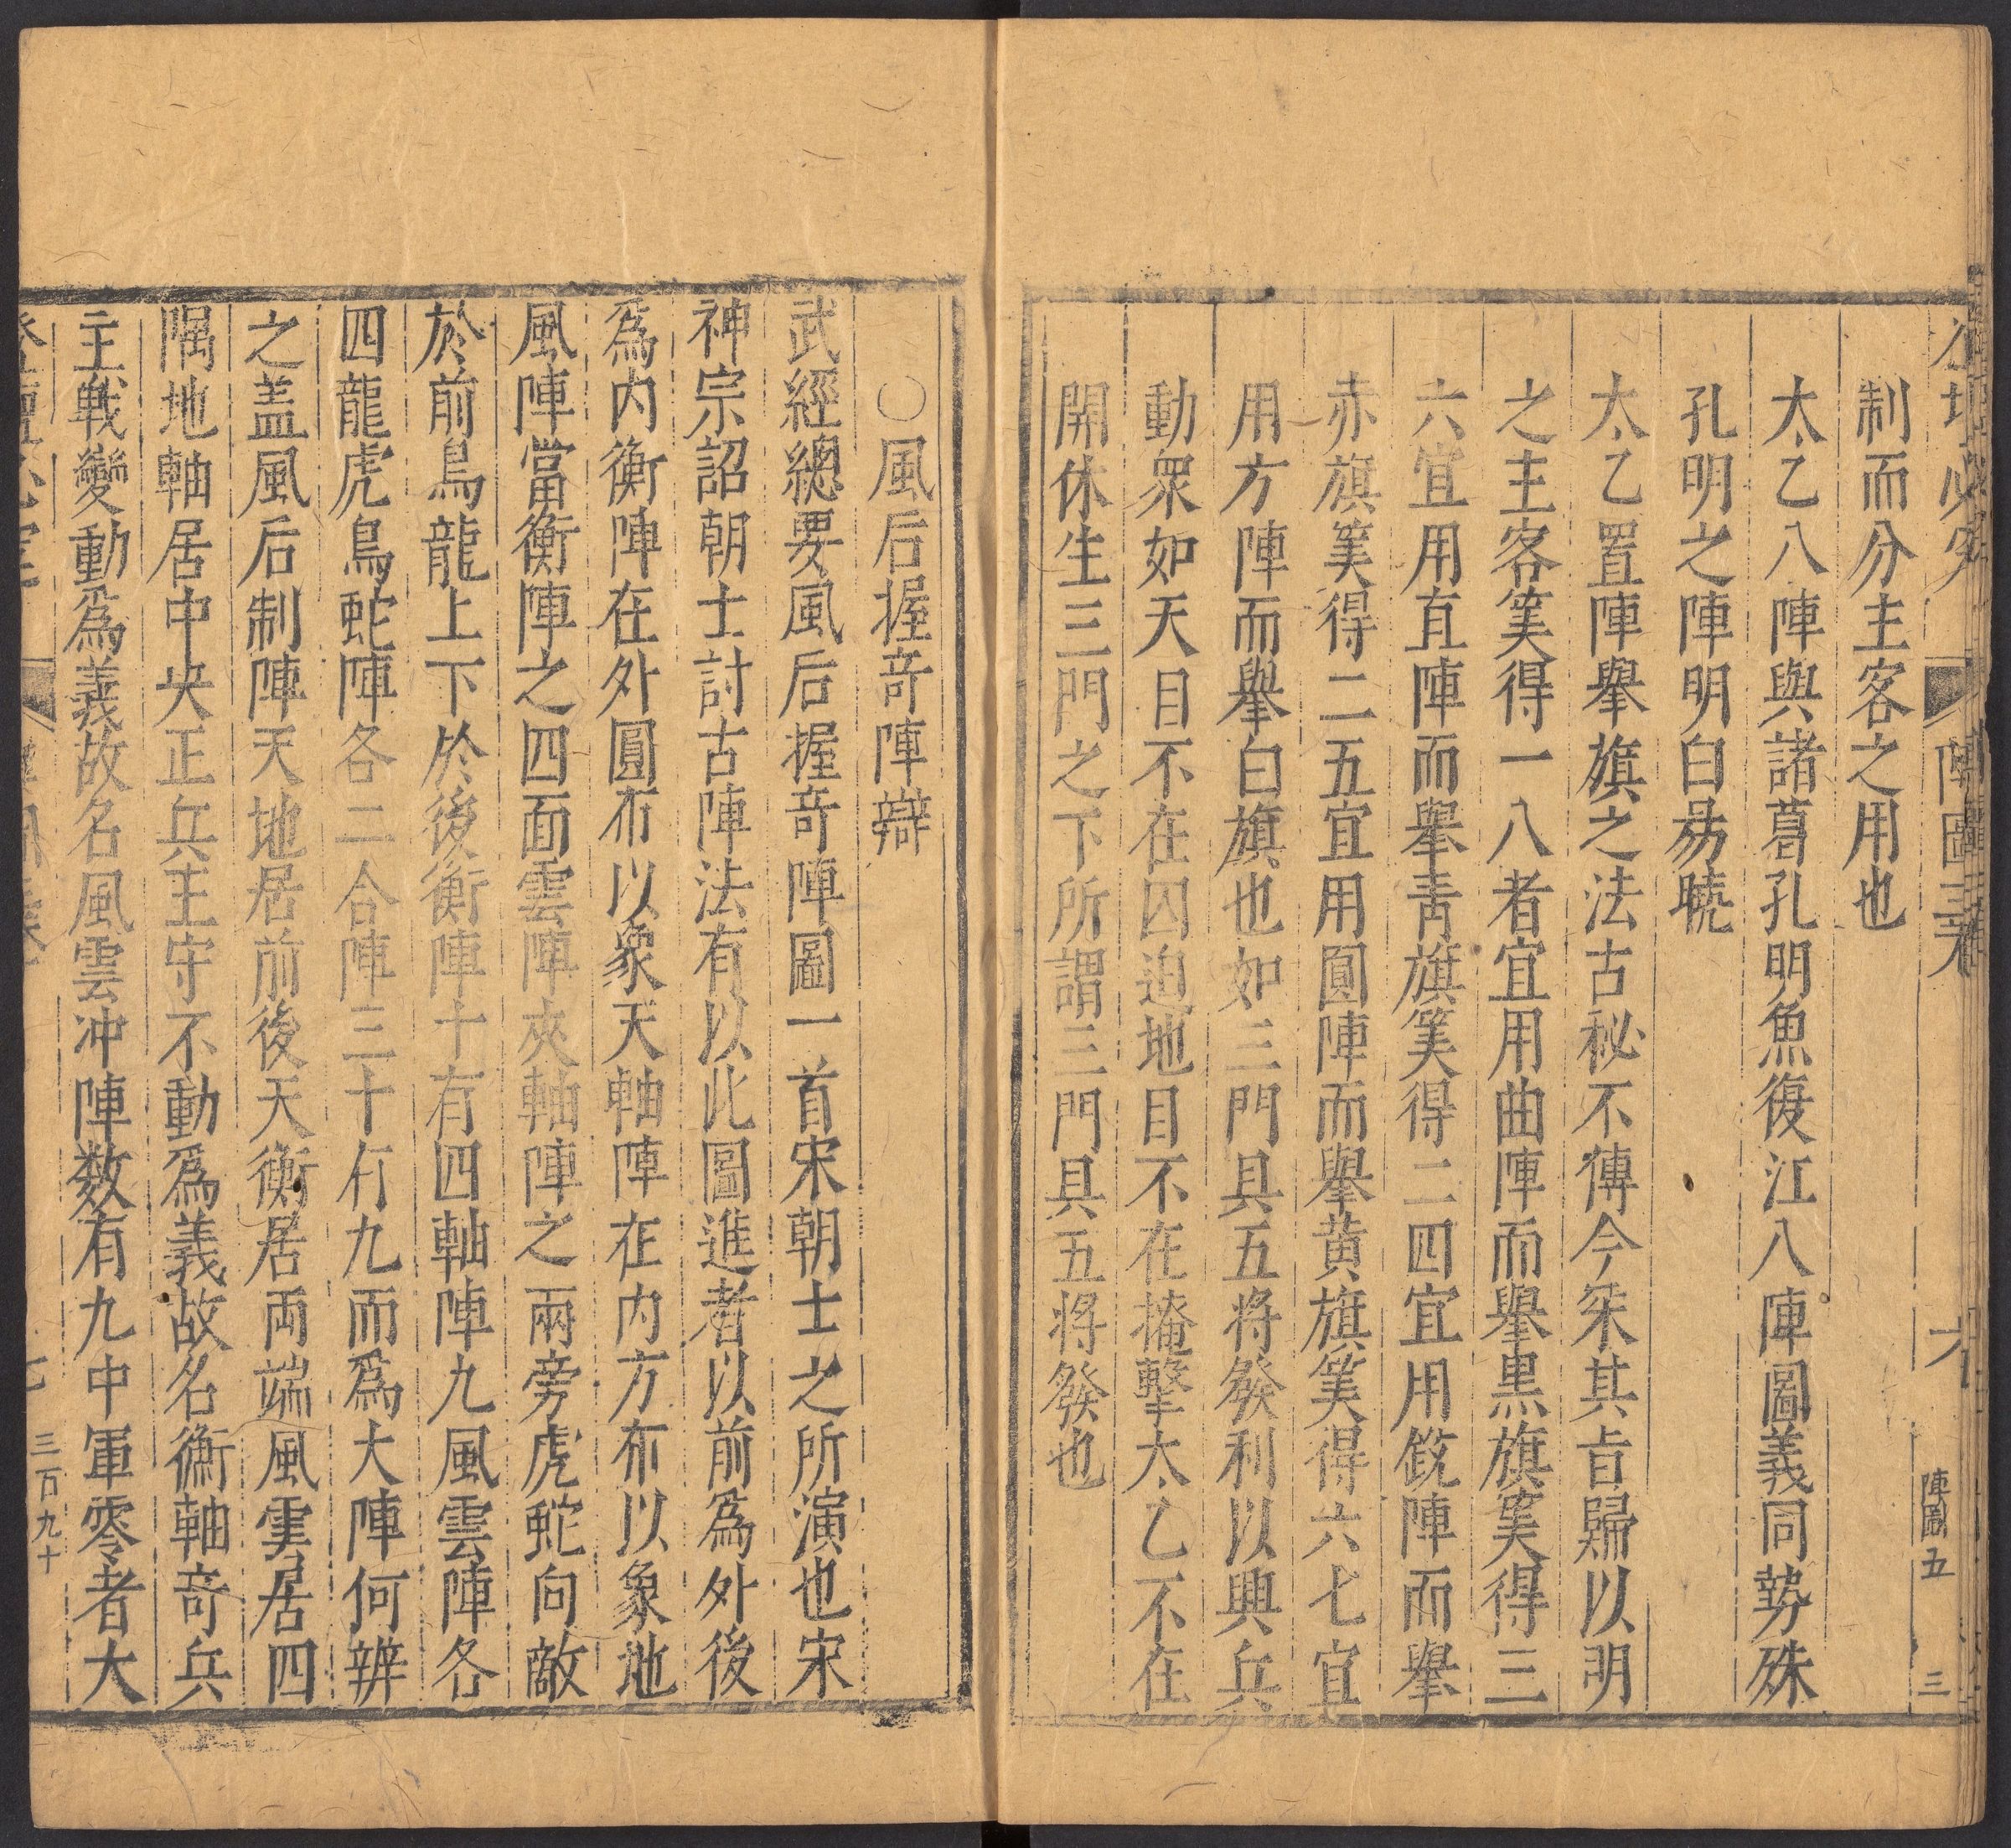 陣圖三卷 六 陣圖五 三
制而分主客之用也
太乙八陣與諸葛孔明魚復江八陣圖義同勢殊
孔明之陣明白昜曉
太乙置陣舉旗之法古秘不傳今采其旨歸以明
之主客筭得一八者宜用曲陣而舉黒旗筭得三
六宜用直陣而舉青旗筭得二四宜用銳陣而舉
赤旗筭得二五宜用圓陣而舉黄旗筭得六七宜
用方陣而舉白旗也如三門具五将發利以興兵
動衆如天目不在囚迫地目不在掩擊太乙不在
開休生三門之下所謂三門具五将發也
○風后握竒陣辯
武經總要風后握竒陣圖一首宋朝士之所演也宋
神宗詔朝士討古陣法有以此圖進者以前為外後
為内衡陣在外圓布以象天軸陣在内方布以象地
風陣當衡陣之四面雲陣夾軸陣之兩旁虎蛇向敵
於前鳥龍上下於後衡陣十有四軸陣九風雲陣各
四龍虎鳥蛇陣各二合陣三十有九而為大陣何辨
之盖風后制陣天地居前後天衡居両端風雲居四
隅地軸居中央正兵主守不動為義故名衡軸竒兵
主戰變動為義故名風雲冲陣数有九中軍零者大
七 三百九十